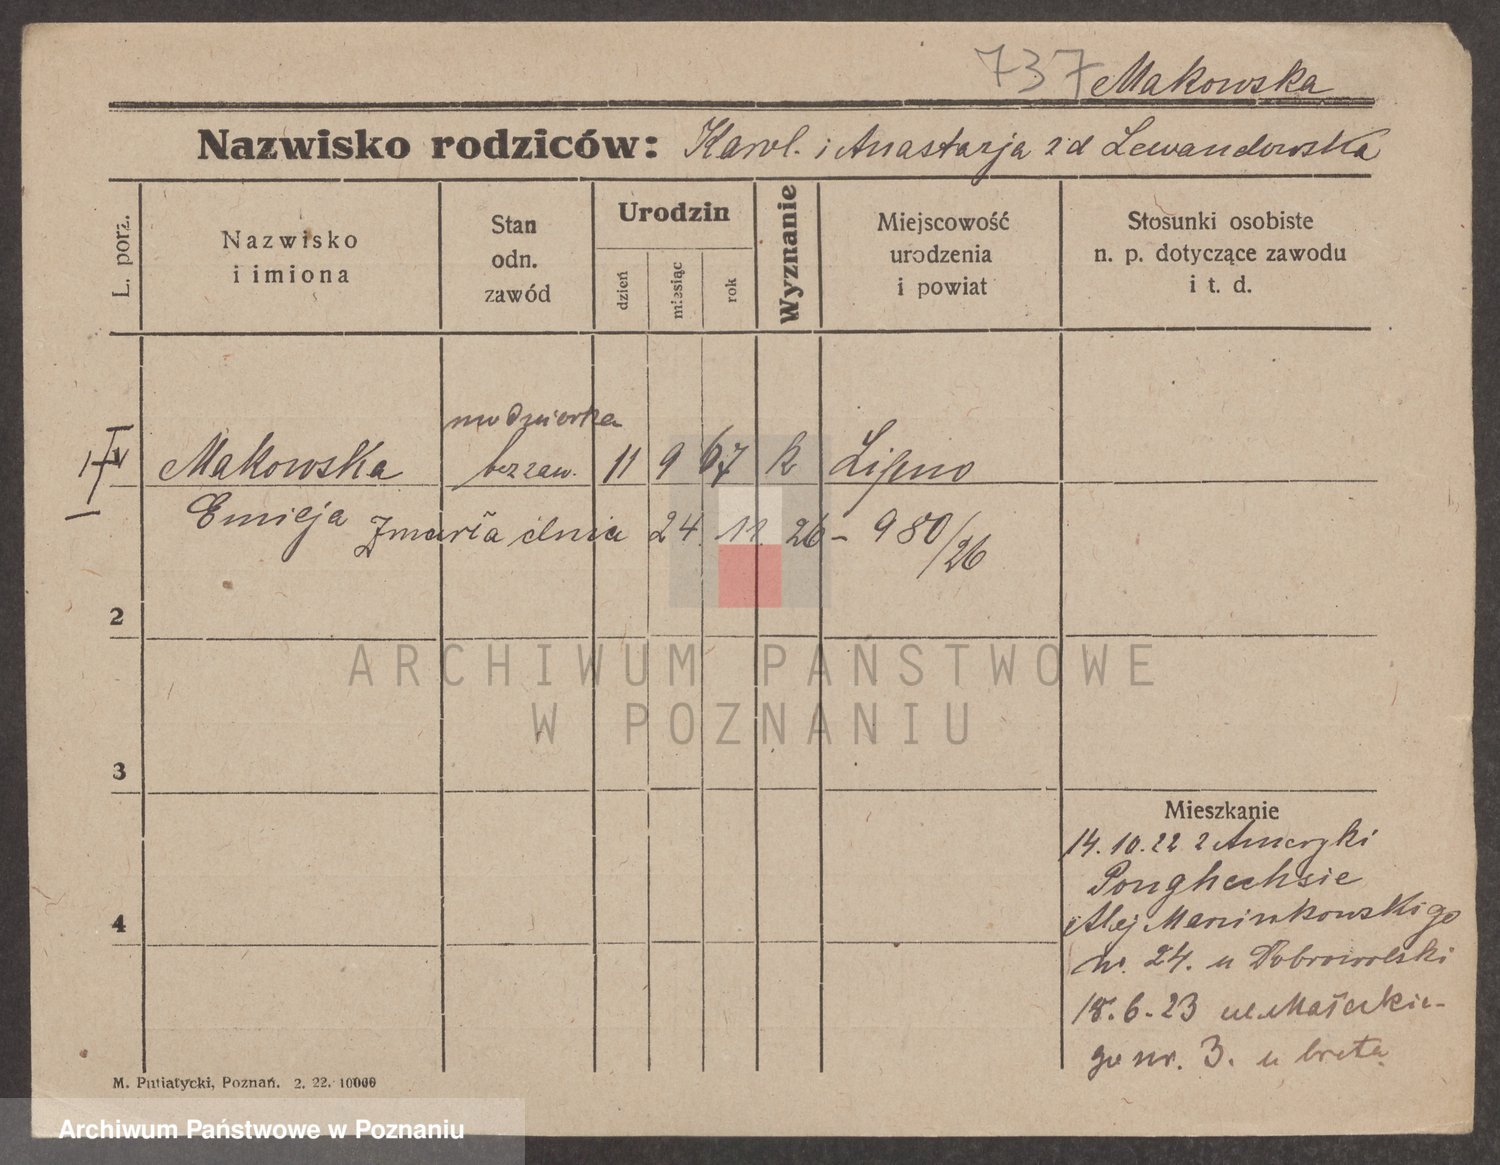 737 Makowska
Nazwisko rodziców: Karol. i Anastazja zd Lewandowska
L. porz.
Nazwisko
i imiona
Stan
odn.
zawód
Urodzin
dzień
miesiąc
rok
Wyznanie
Miejscowość
urodzenia
i powiat
Stosunki osobiste
n. p. dotyczące zawodu
i t. d.
Makowska bez zaw. 11 9 67 k Lipno
Zmarła dnia 24. 11. 26 - 980/26
2
ARCHIWUM PAŃSTWOWE
W POZNANIU
3
Mieszkanie
14.10.22 z Ameryki
Alej Marcinkowskigo
4
nr. 24. u Dobrowolski
18.6.23 ul. Małeckie-
go nr. 3. u brata
M. Putiatycki, Poznań. 2. 22. 10000
Archiwum Państwowe w Poznaniu